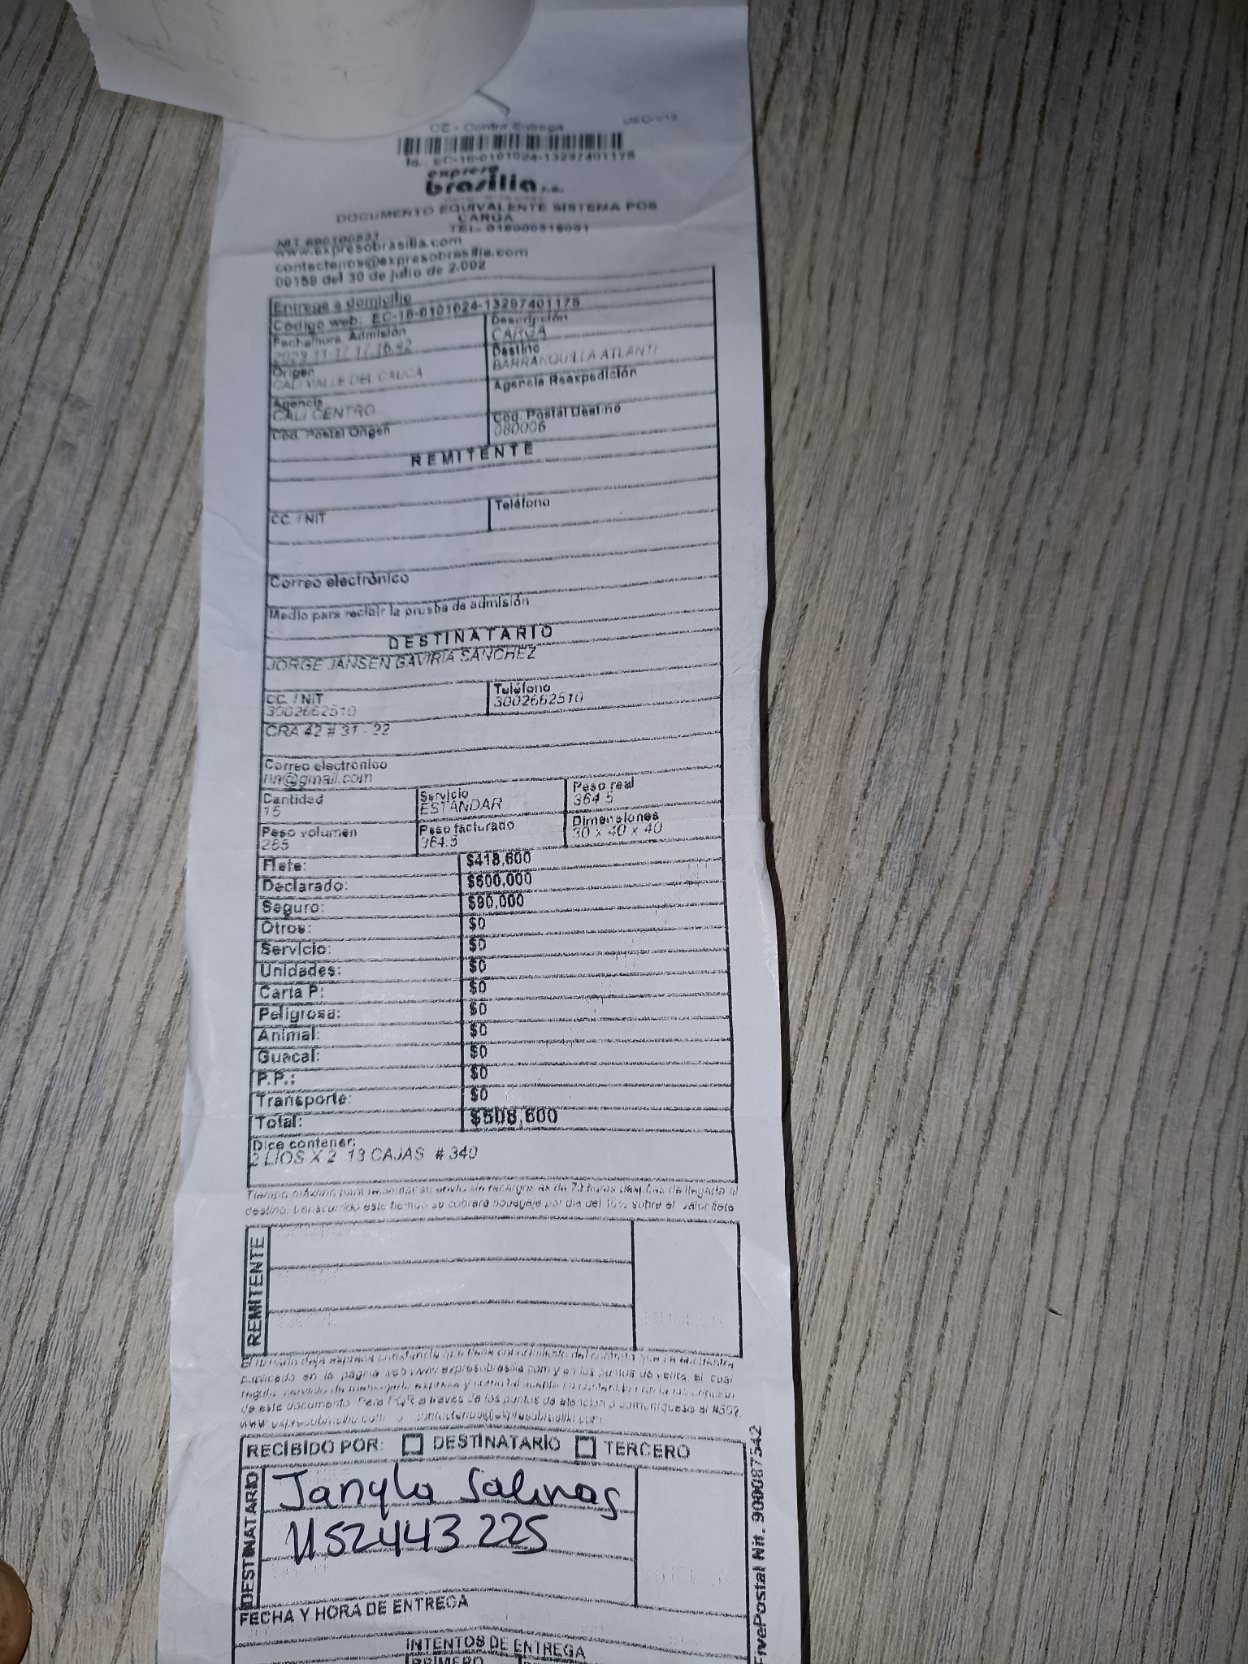 CE - Contra Entrega
Id.: EC-16-0101024-13297401175
expreso
brasilia s.a.
DOCUMENTO EQUIVALENTE SISTEMA POS
CARGA
TEL. 018000518001
www.expresobrasilia.com
contactenos@expresobrasilia.com
00159 del 30 de julio de 2.002
Entrega a domicilio
Código web: EC-16-0101024-13297401175
Fecha/hora Admisión Descripción
2023-11-17 17:16:42 CARGA
Origen Destino
CALI VALLE DEL CAUCA BARRANQUILLA ATLANTI
Agencia Agencia Reexpedición
CALI CENTRO
Cod. Postal Origen Cod. Postal Destino
080006
REMITENTE
CC. / NIT Teléfono
Correo electrónico
Medio para recibir la prueba de admisión
DESTINATARIO
JORGE JANSEN GAVIRIA SANCHEZ
CC. / NIT Teléfono
3002662510 3002662510
CRA 42 # 31 - 22
Correo electrónico
nn@gmail.com
Cantidad Servicio Peso real
15 ESTANDAR 364.5
Peso volumen Peso facturado Dimensiones
265 364.5 30 x 40 x 40
Flete: $418,600
Declarado: $600,000
Seguro: $90,000
Otros: $0
Servicio: $0
Unidades: $0
Carta P: $0
Peligrosa: $0
Animal: $0
Guacal: $0
P.P.: $0
Transporte: $0
Total: $508,600
Dice contener:
2 LIOS X 2 13 CAJAS # 340
Tiempo máximo para reclamar su envío sin recargos es de 72 horas después de llegado al
destino, transcurrido este tiempo se cobrará bodegaje por día del 10% sobre el valor flete
REMITENTE
publicado en la página web www.expresobrasilia.com y en los puntos de venta, el cual
de este documento. Para PQR a través de los puntos de atención o comuníquese al #502,
www.expresobrasilia.com o contactenos@expresobrasilia.com
RECIBIDO POR: DESTINATARIO TERCERO
DESTINATARIO
Janyla Salinas
1152443225
FECHA Y HORA DE ENTREGA
INTENTOS DE ENTREGA
PRIMERO
Nit. 900087542